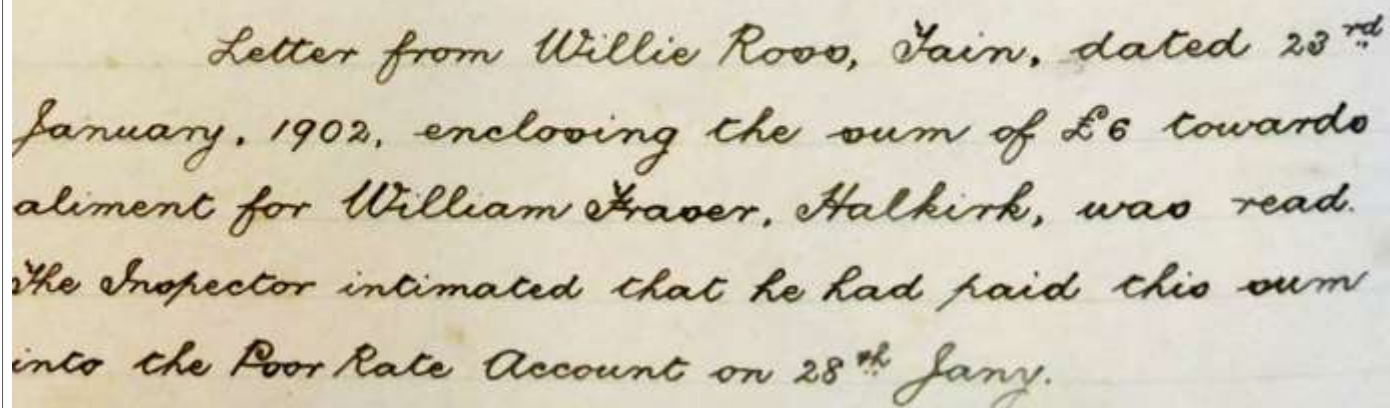 Letter from Willie Ross, Tain, dated 23rd
January, 1902, enclosing the sum of £6 towards
aliment for William Fraser, Halkirk, was read.
The Inspector intimated that he had paid this sum
into the Poor Rate Account on 28th Jany.